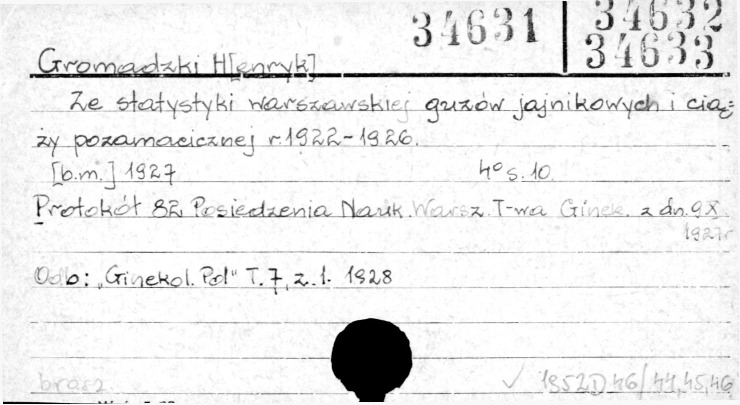 34631 34632
34633
Gromadzki H[enryk]
Ze statystyki warszawskiej guzów jajnikowych i cią=
ży pozamacicznej r. 1922-1926.
[b.m.] 1927 4° s. 10.
Protokół 82 Posiedzenia Nauk. Warsz. T-wa Ginek. z dn. 9 X
1927r
Odb: „Ginekol. Pol" T. 7, z. 1. 1928
brosz ✓ 1952 D 46/44,45,46